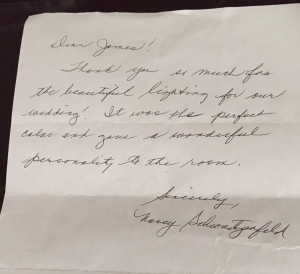 Dear James!
Thank you so much for
the beautiful lighting for our
wedding! It was the perfect
color and gave a wonderful
personality to the room.
Sincerely,
Nancy